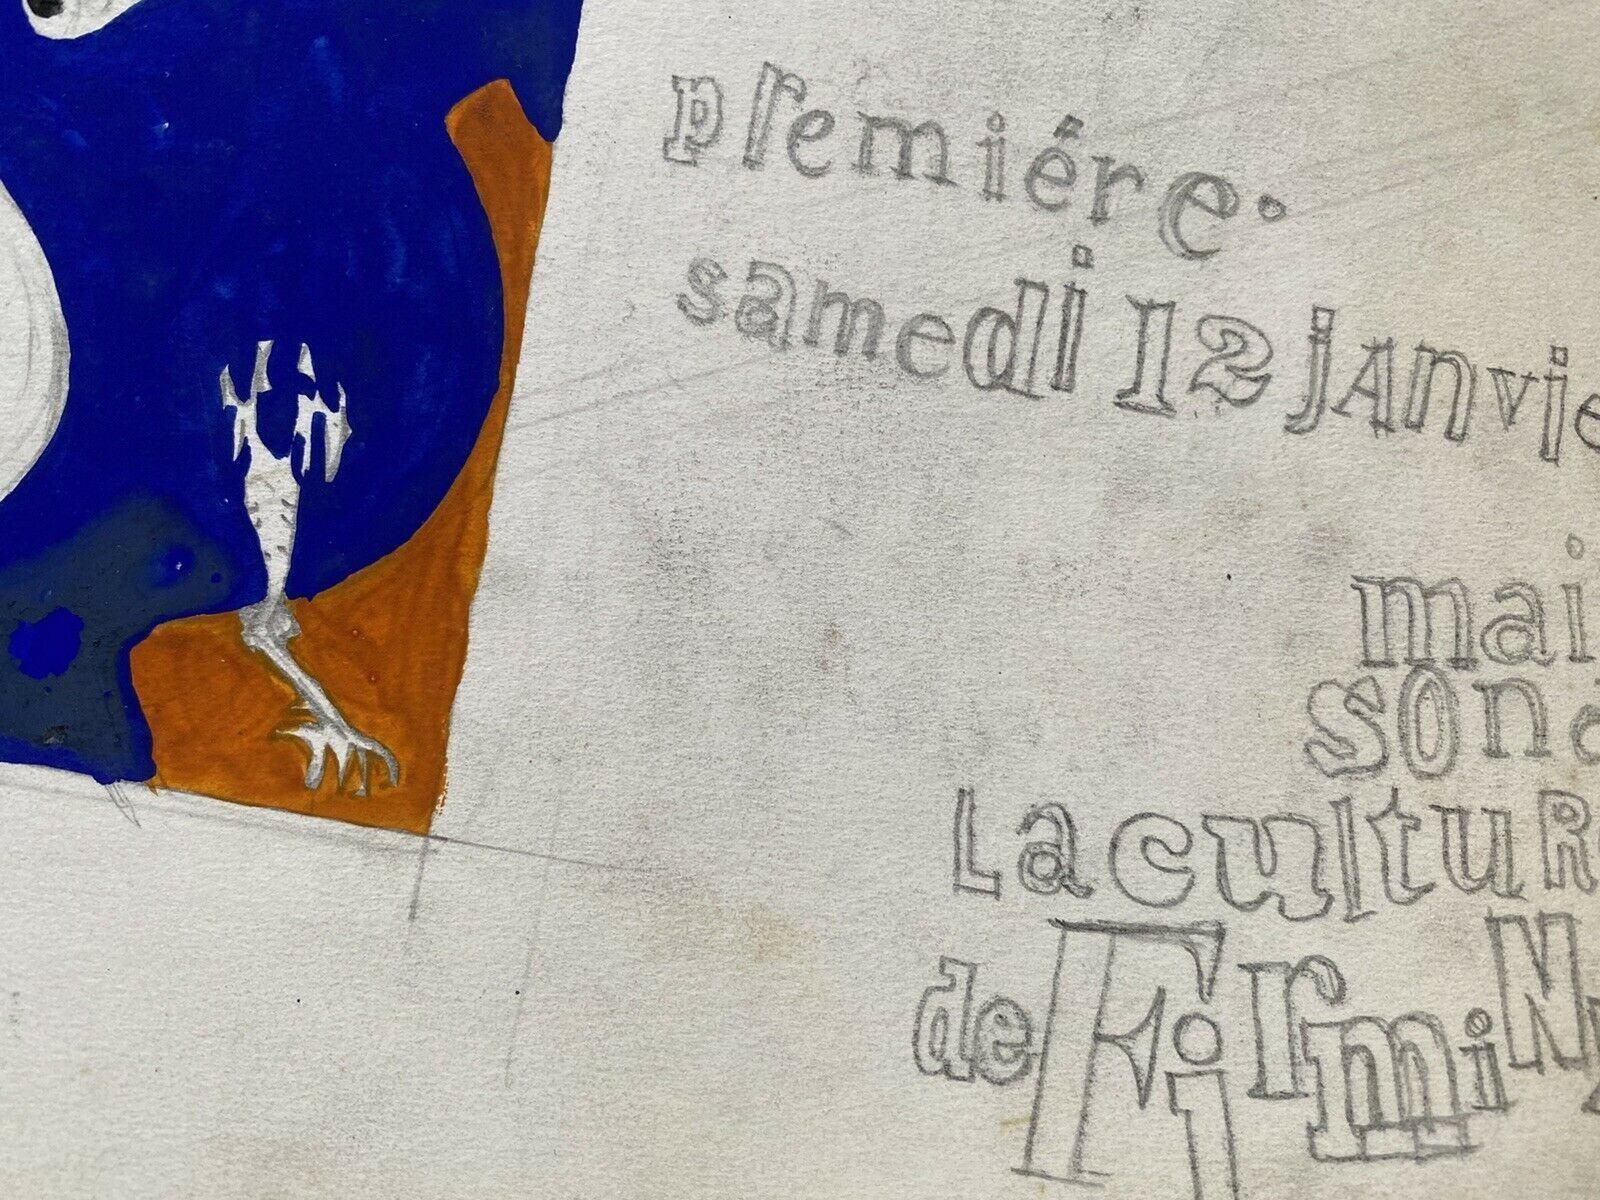 première.
samedi 12 jAnvie
mai
son d
La cultuRe
de FirmiNy